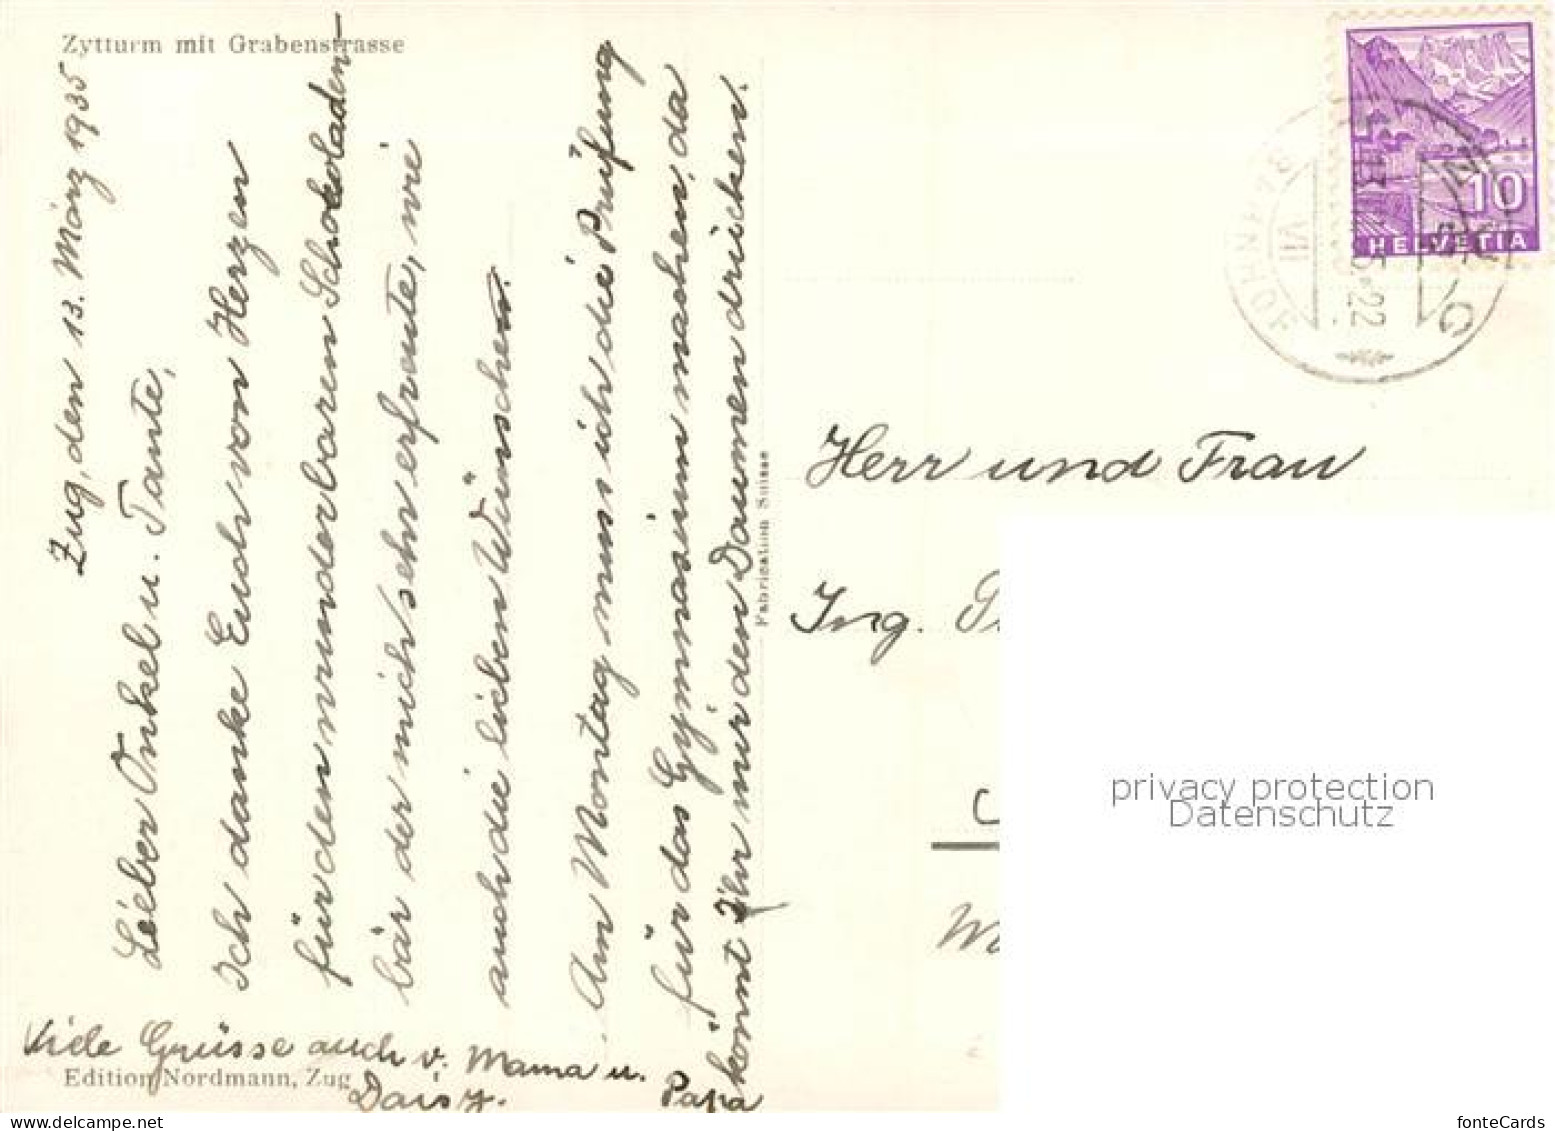 Zytturm mit Grabenstrasse
Zug, den 13. März 1935
Lieber Onkel u. Tante,
Ich danke Euch von Herzen
für den wunderbaren Schokoladen-
bär der mich sehr erfreute, wie
auch die lieben Wünschen.
Am Montag muss ich die Prüfung
für das Gymnasium machen, da
könnt Ihr mir den Daumen drücken.
Viele Grüsse auch v. Mama u. Papa
Daisy.
Edition Nordmann, Zug
Fabrication Suisse
10
HELVETIA
BAHNHOF
VII
Herr und Frau
Ing.
privacy protection
Datenschutz
fonteCards